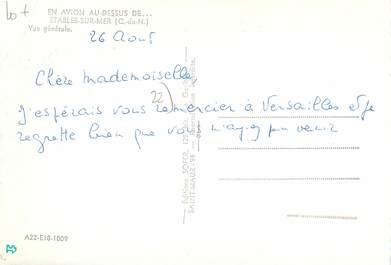 lot
EN AVION AU-DESSUS DE...
ETABLES-SUR-MER (C.-du-N.)
Vue générale.
26 Août
Chère mademoiselle,
J'espérais vous remercier à Versailles et je
22)
regrette bien que vous n'ayez pu venir
A22-E18-1009